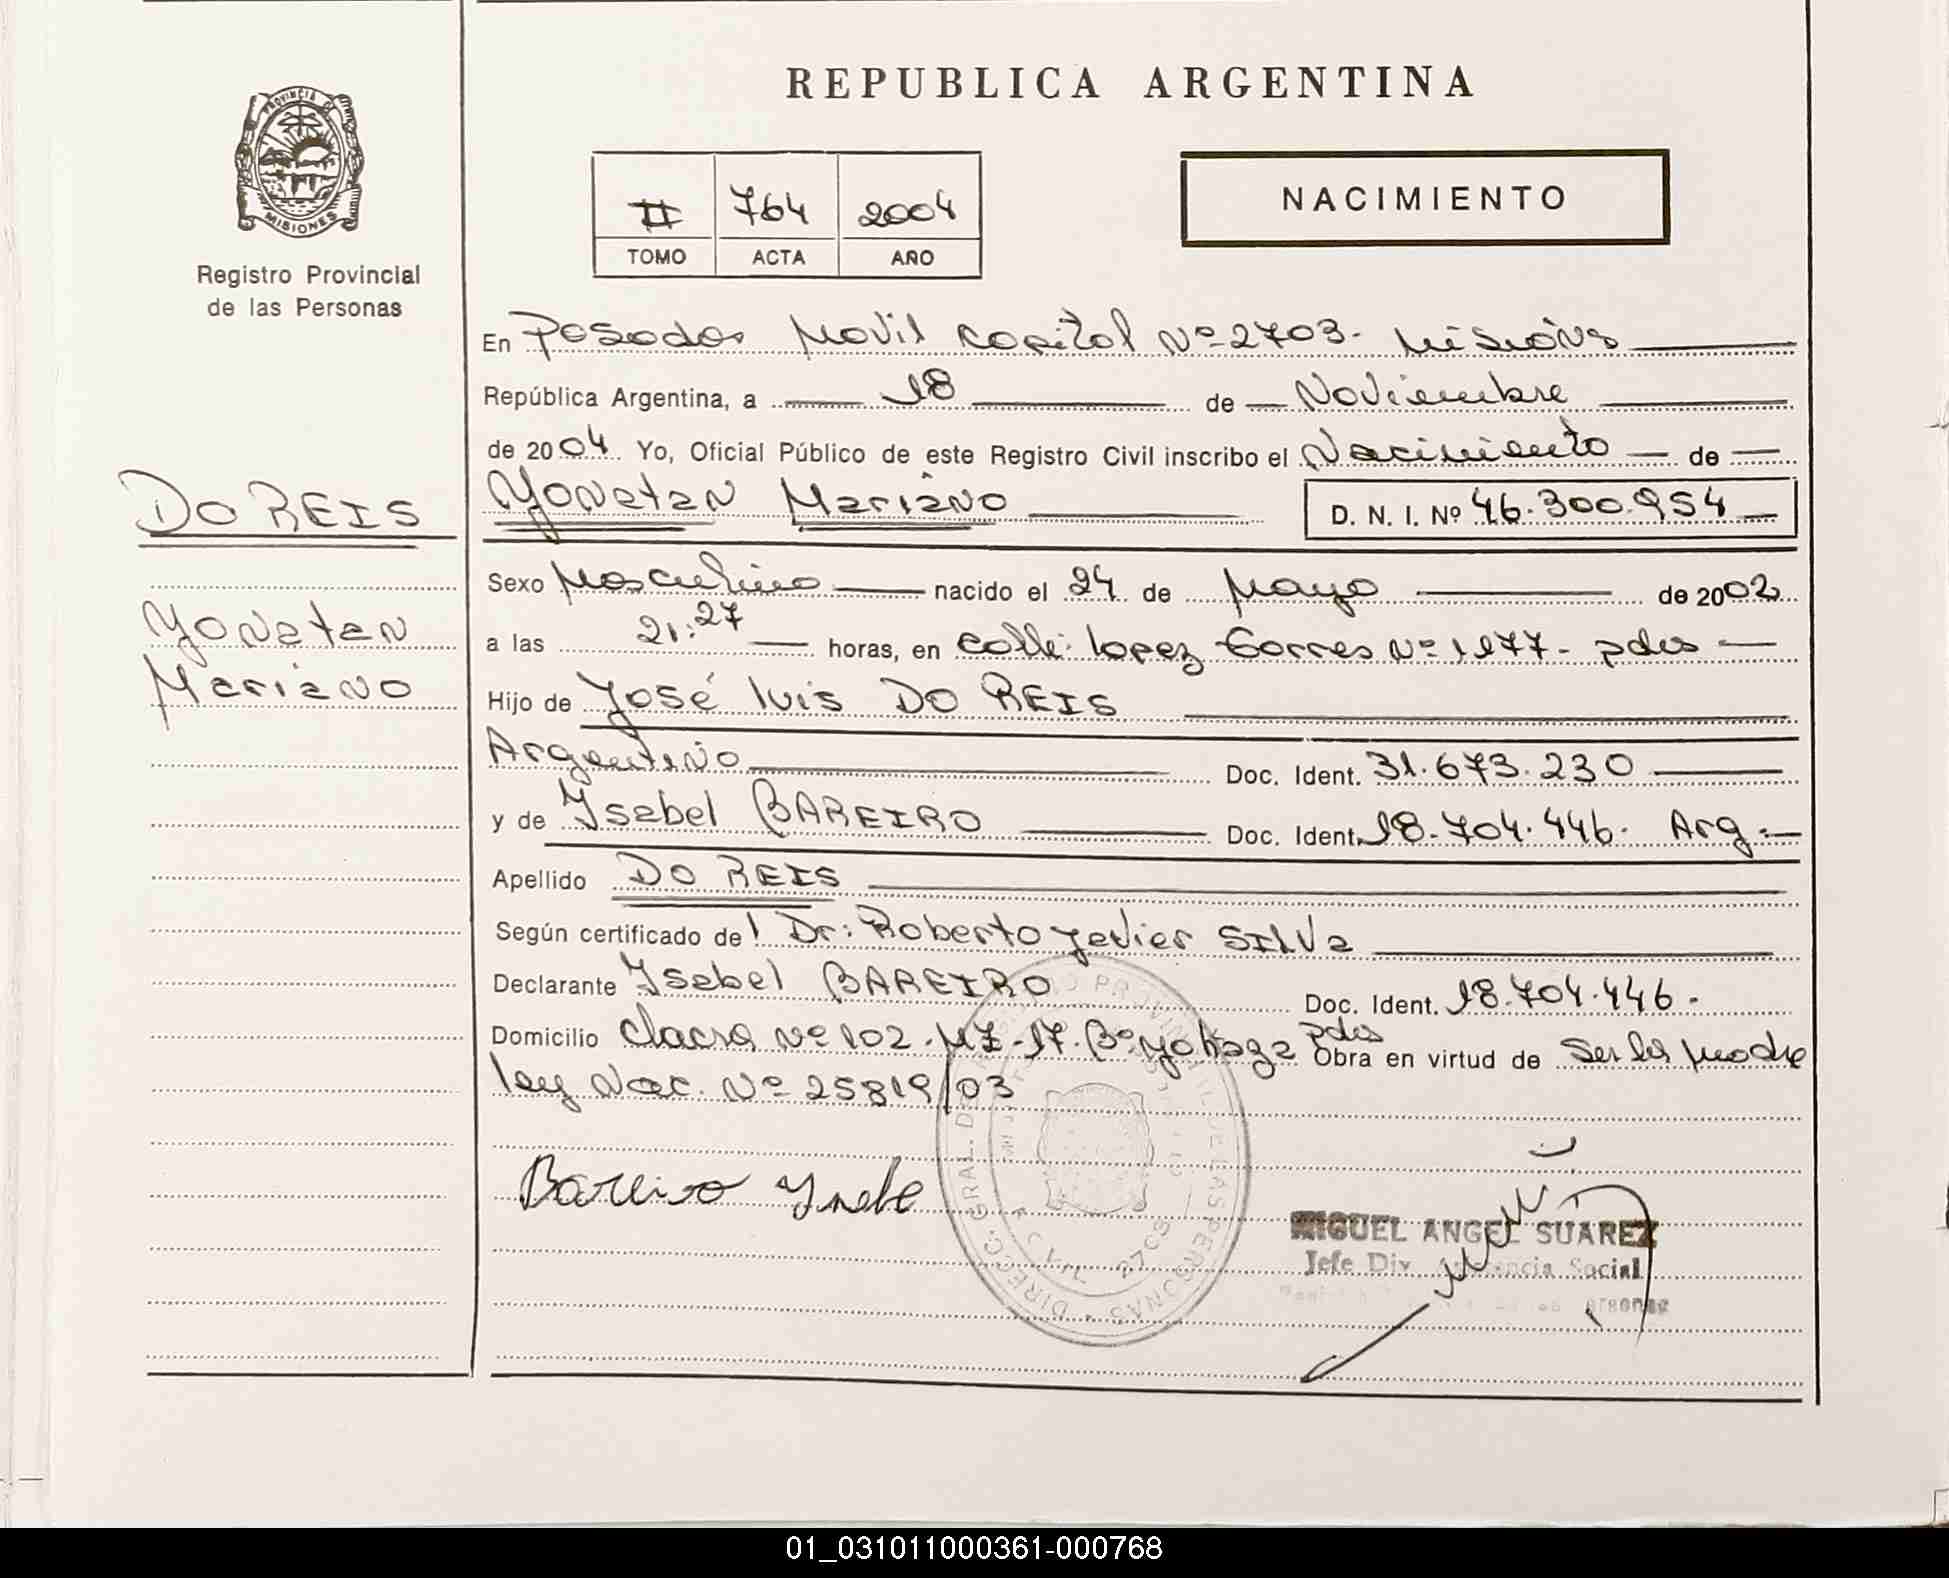 PROVINCIA DE
MISIONES
Registro Provincial
de las Personas
REPUBLICA ARGENTINA
II 764 2004
TOMO ACTA AÑO
NACIMIENTO
En Posadas Movil Capital Nº 2703- Misiones
República Argentina, a 18 de Noviembre
de 2004. Yo, Oficial Público de este Registro Civil inscribo el Nacimiento de
DO REIS
Yonatan Mariano D. N. I. Nº 46.300.954
Sexo Masculino nacido el 24 de Mayo de 2002
Yonatan
Mariano
a las 21:27 horas, en calle: Lopez Torres Nº 1177- pdas
Hijo de José Luis DO REIS
Argentino Doc. Ident. 31.673.230
y de Ysabel BAREIRO Doc. Ident. 18.704.446. Arg.
Apellido DO REIS
Según certificado del Dr: Roberto Javier SILVA
Declarante Ysabel BAREIRO Doc. Ident. 18.704.446.
Domicilio Chacra Nº 102. MZ-17. Bº Yohasa pdas Obra en virtud de Ser la Madre
Ley Nac. Nº 25819/03
Bareiro Ysabel
DIRECC. GRAL. DEL REGISTRO PROVINCIAL DE LAS PERSONAS
MIGUEL ANGEL SUAREZ
Jefe Div. Asistencia Social
01_031011000361-000768